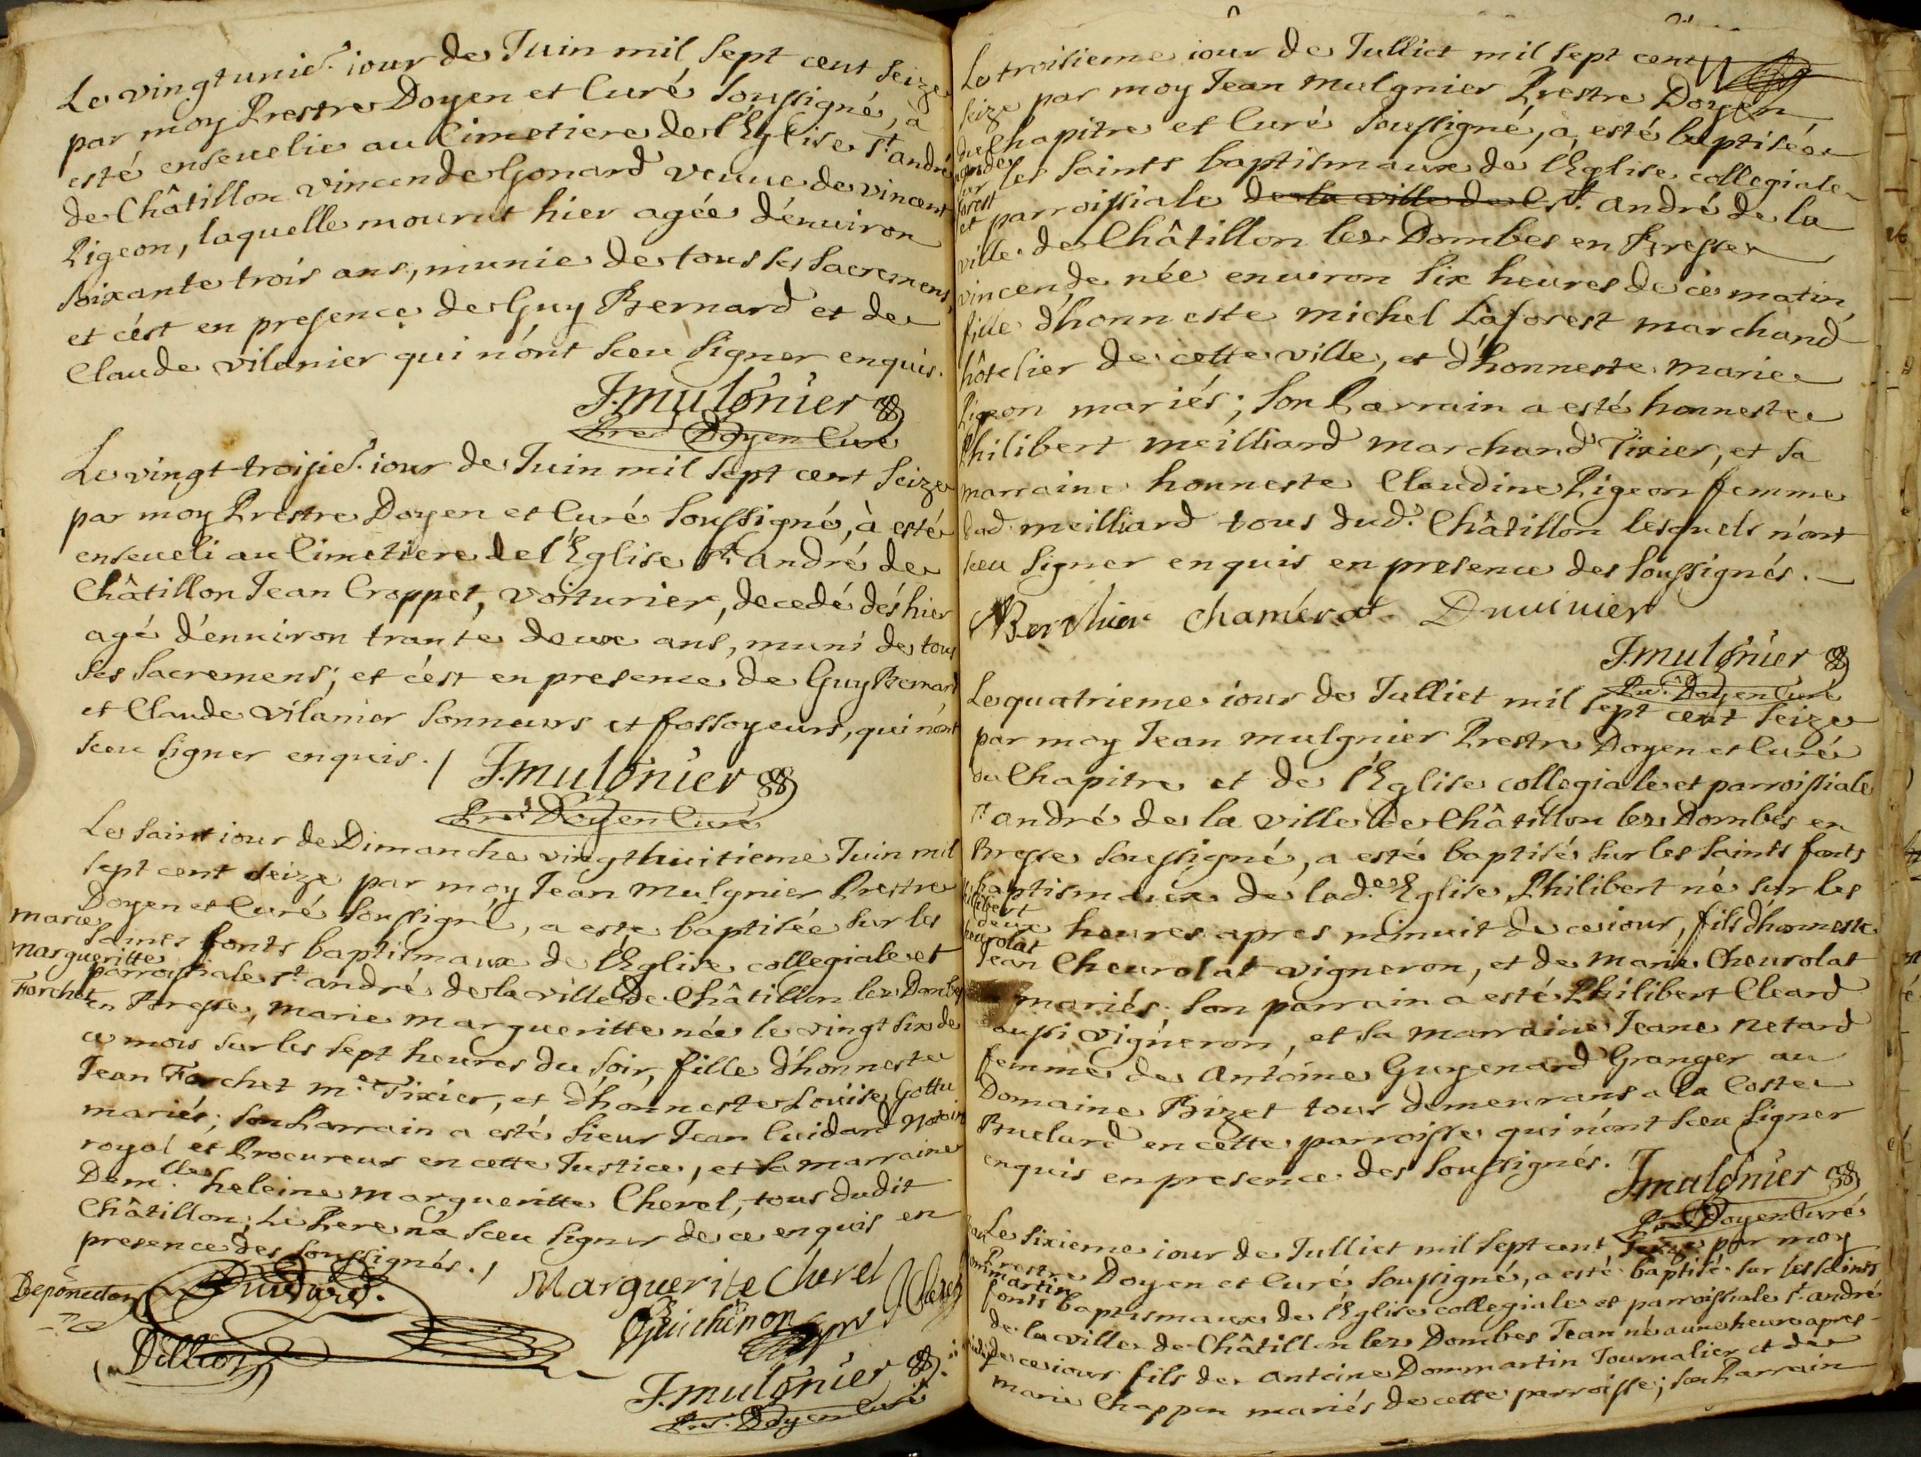 Le vingtunie. iour de Juin mil sept cent seize
par moy Prestre Doyen et Curé soussigné, à
esté enseuelie au Cimetiere de l'Eglise St. André
de Châtillon vincende Gonard veuue de vincent
Pigeon, laquelle mourut hier agée d'enuiron
soixante trois ans, munie de tous ses sacremens,
et c'est en presence de Guy Bernard et de
Claude vilanier qui n'ont sceu signer enquis.
J. mulgnier
Pre. Doyen Curé
Le vingt troisie. iour de Juin mil sept cent seize
par moy Prestre Doyen et Curé soussigné, à esté
enseueli au Cimetiere de l'Eglise St. André de
Châtillon Jean Croppet, voiturier, decedé dés hier
agé d'enuiron trante deux ans, muni de tous
ses sacremens; et c'est en presence de Guy Bernard
et Claude vilanier sonneurs et fossoyeurs, qui n'ont
sceu signer enquis. / J. mulgnier
Pre. Doyen Curé
Le saint iour de Dimanche vingthuitieme Juin mil
sept cent seize par moy Jean mulgnier Prestre
Doyen et Curé soussigné, a esté baptisée sur les
marie margueritte Forchet
saincts fonts baptismaux de l'Eglise collegiale et
parroissiale St. andré de la ville de Châtillon lez Dombes
en Bresse, marie margueritte née le vingt six de
ce mois sur les sept heures du soir, fille d'honneste
Jean Forchet m.e Tixier, et d'honneste Loüise Gottu
mariés; son Parrain a esté sieur Jean Cuidard Notaire
royal et Procureur en cette Justice, et sa marraine
Dem.lle heleine margueritte Cherel, tous dudit
Châtillon; Le Pere n'a sceu signer de ce enquis en
presence des soussignés. /
Marguerite Cherel
Guichenon
Dillion
J. mulgnier
Pre. Doyen Curé
Le troisieme iour de Julliet mil sept cent
seize par moy Jean mulgnier Prestre Doyen
du Chapitre et Curé soussigné, a esté baptisée
sur les saints baptismaux de l'Eglise collegiale
et parroissiale de la ville de C St. andré de la
ville de Châtillon lez Dombes en Bresse
vincende née enuiron six heures de ce matin,
fille d'honneste michel Laforest marchand
hôtelier de cette ville, et d'honneste marie
Pigeon mariés; son Parrain a esté honneste
Philibert meilliard marchand Tixier, et sa
marraine honneste Claudine Pigeon femme
dud. meilliard tous dud. Châtillon lesquels n'ont
sceu signer enquis en presence des soussignés.
Chamerat Duuiuier
J. mulgnier
Pre. Doyen Curé
Le quatrieme iour de Julliet mil sept cent seize
par moy Jean mulgnier Prestre Doyen et Curé
du Chapitre et de l'Eglise collegiale et parroissiale
St. andré de la ville de Châtillon lez Dombes en
Bresse soussigné, a esté baptisé sur les saints fonts
baptismaux de lad.e Eglise Philibert né sur les
deux heures apres minuit de ce iour, fils d'honneste
Jean Cheurolat vigneron, et de marie Cheurolat
mariés. son parrain a esté Philibert Cleard
aussi vigneron, et sa marraine Jeane Netard
femme de Antoine Guyenard Granger au
Domaine Bizet tous demeurans a la Coste
Buclard en cette parroisse qui n'ont sceu signer
enquis en presence des soussignés. J. mulgnier
Pre. Doyen Curé
Le sixieme iour de Julliet mil sept cent seize par moy
Prestre Doyen et Curé soussigné, a esté baptisé sur les saints
fonts baptismaux de l'Eglise collegiale et parroissiale St. andré
de la ville de Châtillon lez Dombes Jean né a une heure apres
de ce iour fils de Antoine Dommartin Journalier et de
marie Chappon mariés de cette parroisse; son Parrain